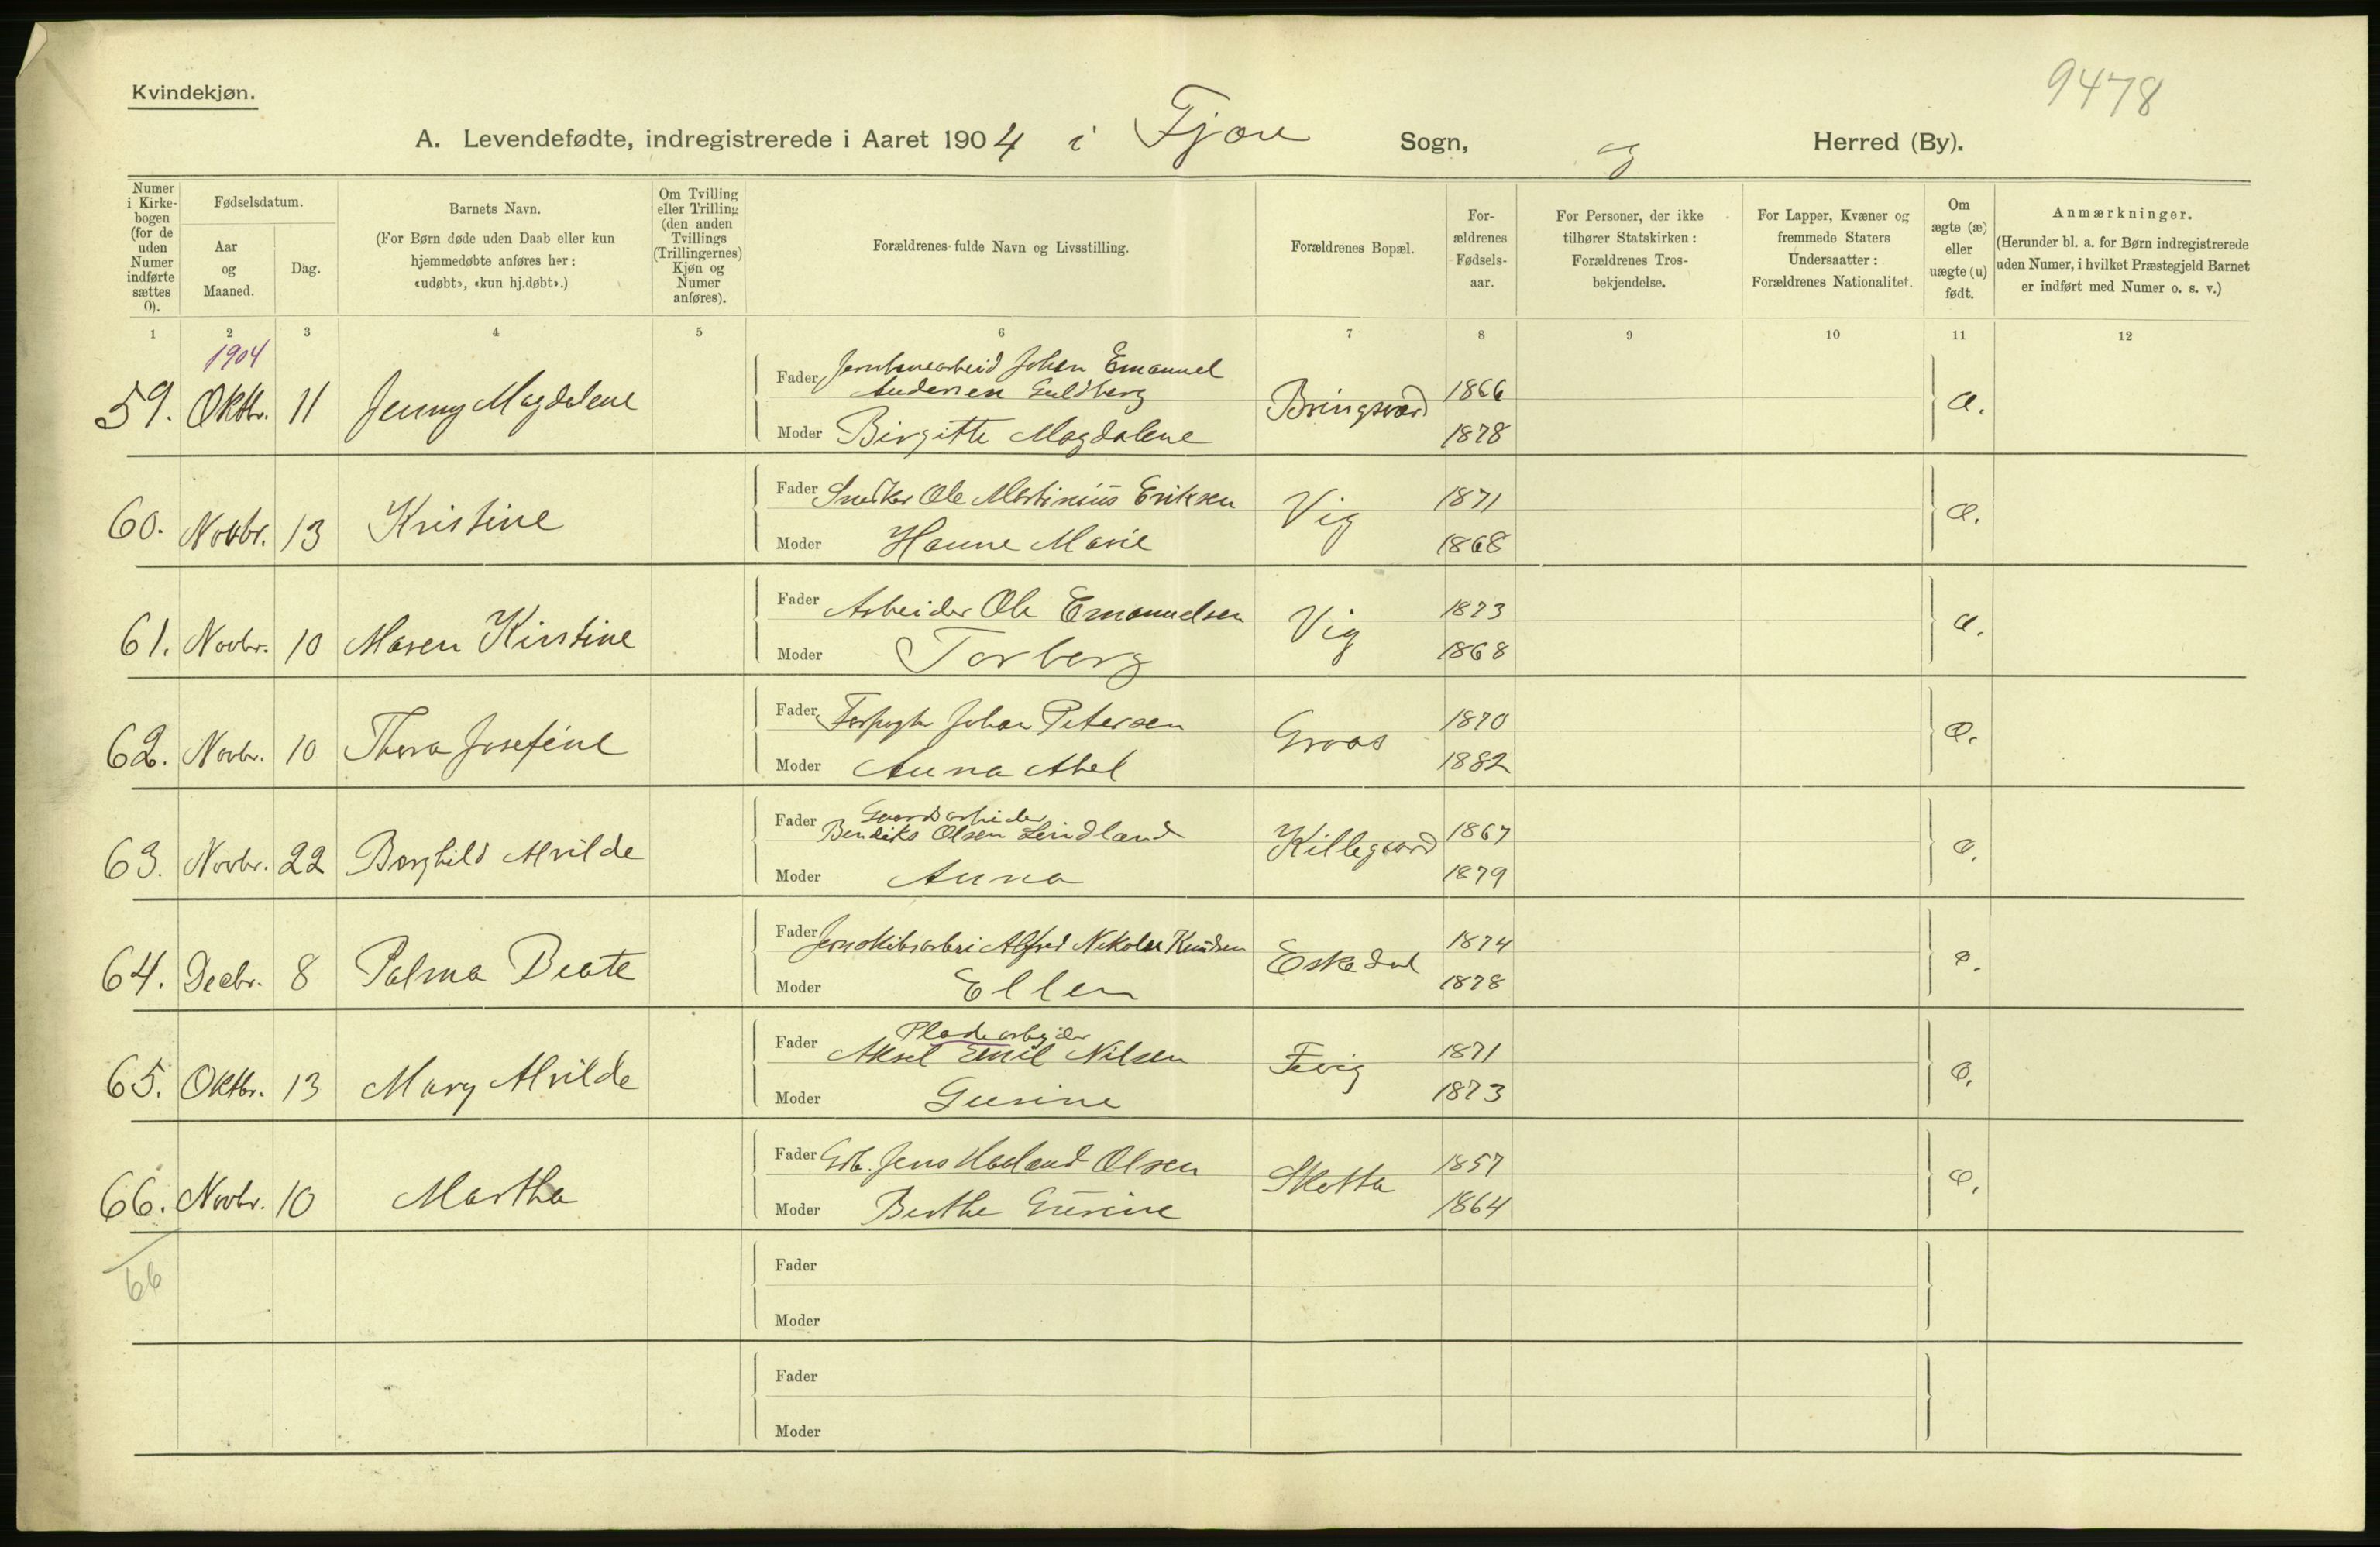 9478
Kvindekjøn.
A. Levendefødte, indregistrerede i Aaret 1904 i Fjære Sogn, og Herred (By).
Numer i Kirkebogen (for de uden Numer indførte sættes 0).
Fødselsdatum.
Aar og Maaned.
Dag.
Barnets Navn.
(For Børn døde uden Daab eller kun hjemmedøbte anføres her: «udøbt», «kun hj.døbt».)
Om Tvilling eller Trilling (den anden Tvillings (Trillingernes) Kjøn og Numer anføres).
Forældrenes fulde Navn og Livsstilling.
Forældrenes Bopæl.
Forældrenes Fødselsaar.
For Personer, der ikke tilhører Statskirken: Forældrenes Trosbekjendelse.
For Lapper, Kvæner og fremmede Staters Undersaatter: Forældrenes Nationalitet.
Om ægte (æ) eller uægte (u) født.
Anmærkninger.
(Herunder bl. a. for Børn indregistrerede uden Numer, i hvilket Præstegjeld Barnet er indført med Numer o. s. v.)
1 2 3 4 5 6 7 8 9 10 11 12
1904
59. Oktbr. 11 Jenny Magdalene Fader Johan Emanuel Andersen Guldberg Bringsvær 1866 æ.
Moder Birgitte Magdalene 1878
60. Novbr. 13 Kristine Fader Snedker Ole Martinius Eriksen Vig 1871 æ.
Moder Hanne Marie 1868
61. Novbr. 10 Maren Kirstine Fader Arbeider Ole Emanuelsen Vig 1873 æ.
Moder Torberg 1868
62. Novbr. 10 Thora Josefine Fader Forpagter Johan Petersen Groos 1870 æ.
Moder Anna Abel 1882
63. Novbr. 22 Borghild Alvilde Fader Gaardarbeider
Bendiks Olsen Lindland Killegaard 1867 æ.
Moder Anna 1879
64. Decbr. 8 Palma Beate Fader Jernskibsarbei Alfred Nikolai Knudsen Eskedal 1874 æ.
Moder Ellen 1878
65. Oktbr. 13 Mary Alvilde Fader Pladearbejder
Aksel Emil Nilsen Fevig 1871 æ.
Moder Gusine 1873
66. Novbr. 10 Martha Fader Gdb. Jens Haaland Olsen Skotta 1857 æ.
Moder Berthe Gusine 1864
66
Fader
Moder
Fader
Moder